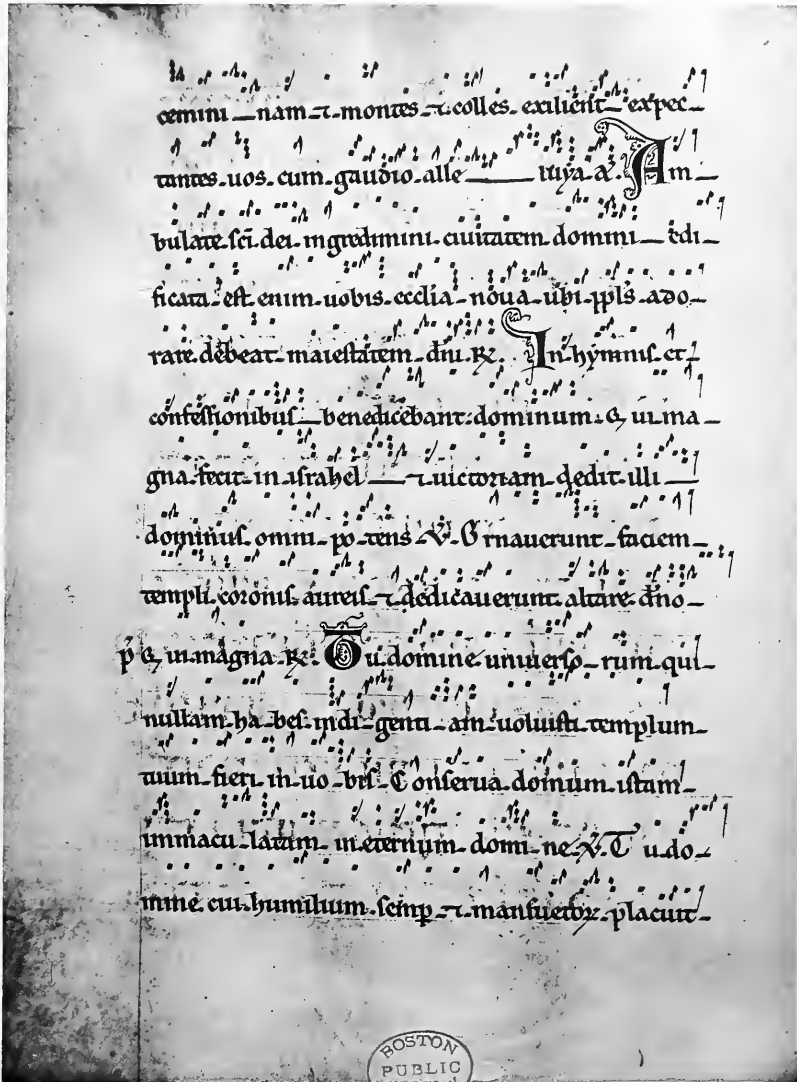 cemini nam ⁊ montes ⁊ colles exilient expec-
tantes uos cum gaudio alle — luya a. Am-
bulate sci dei ingredimini ciuitatem domini edi-
ficata est enim uobis ecclia noua ubi ppls ado-
rare debeat maiestatem dni. ℟. In hymnis et
confessionibus benedicebant dominum. Q, ui ma-
gna fecit in israhel ⁊ uictoriam dedit illi
dominus omni po tens ℣. Ornauerunt faciem
templi coronis aureis ⁊ dedicauerunt altare dno
p̄ Q, ui magna ℟. Tu domine uniuerso rum qui
nullam ha bes indi genti am uoluisti templum
tuum fieri in uo bis. Conserua domum istam
immacu latam in eternum domi ne. ℣. Tu do-
mine cui humilium semp ⁊ mansuetoꝝ placuit
BOSTON
PUBLIC